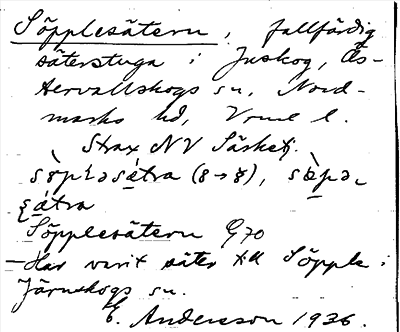 Söpplesätern, fallfärdig
säterstuga i Juskog, Ös-
tervallskogs sn, Nord-
marks hd, Vrml l.
Strax NV Särketj.
Söpplesätern G70
– Har varit säter till Söpple i
Järnskogs sn.
E. Andersson 1936.